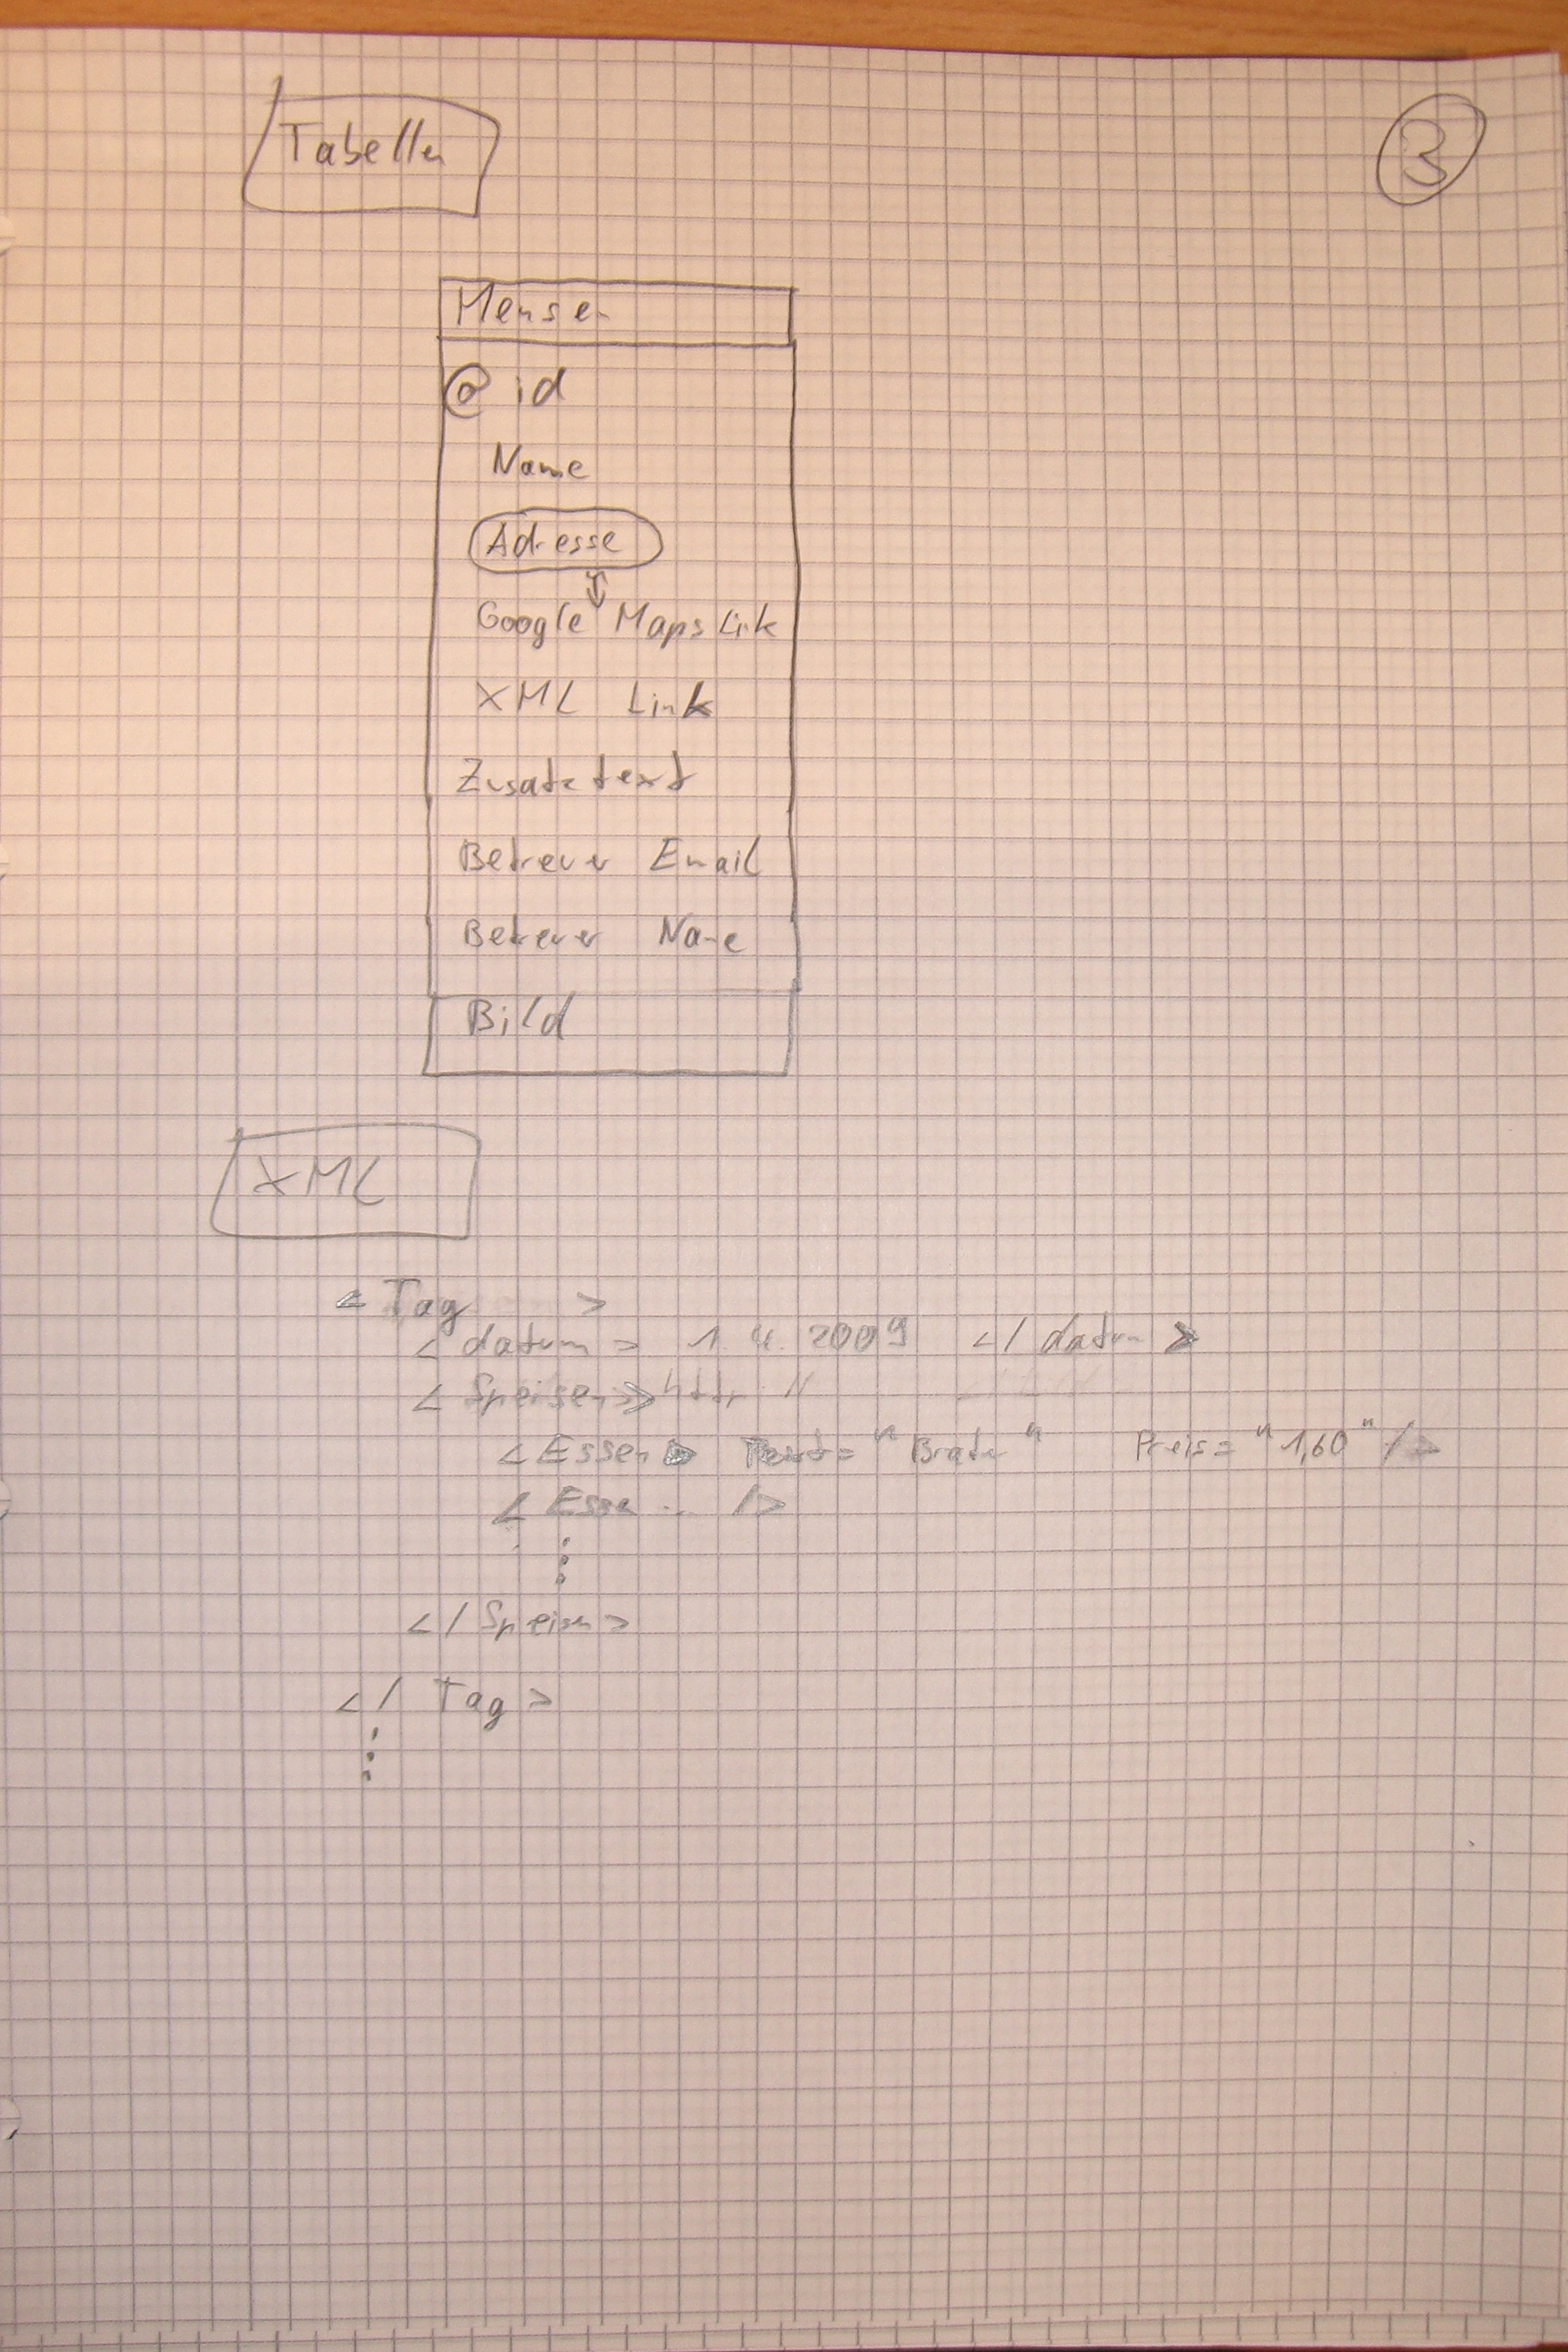 Tabellen
3
Mensen
@ id
Name
Adresse
Google Maps Link
XML Link
Zusatztext
Betreuer Email
Betreuer Name
Bild
XML
< Tag >
< datum > 1. 4. 2009 </ datum >
< Speisen > http: //
< Essen Text= "Braten" Preis= "1,60" />
< Essen ... />
</ Speisen >
</ Tag >